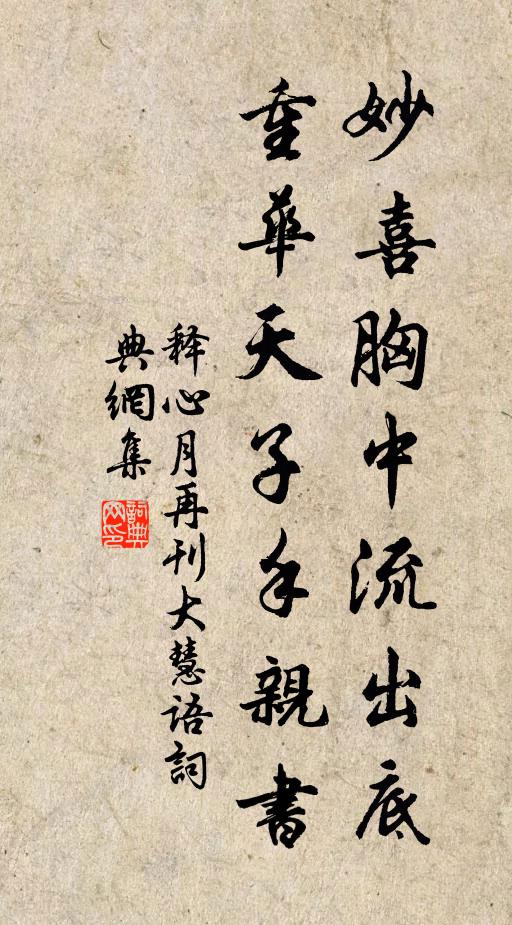 妙喜胸中流出底
重華天子手親書
释心月再刊大慧语詞
典網集
詞典
网印